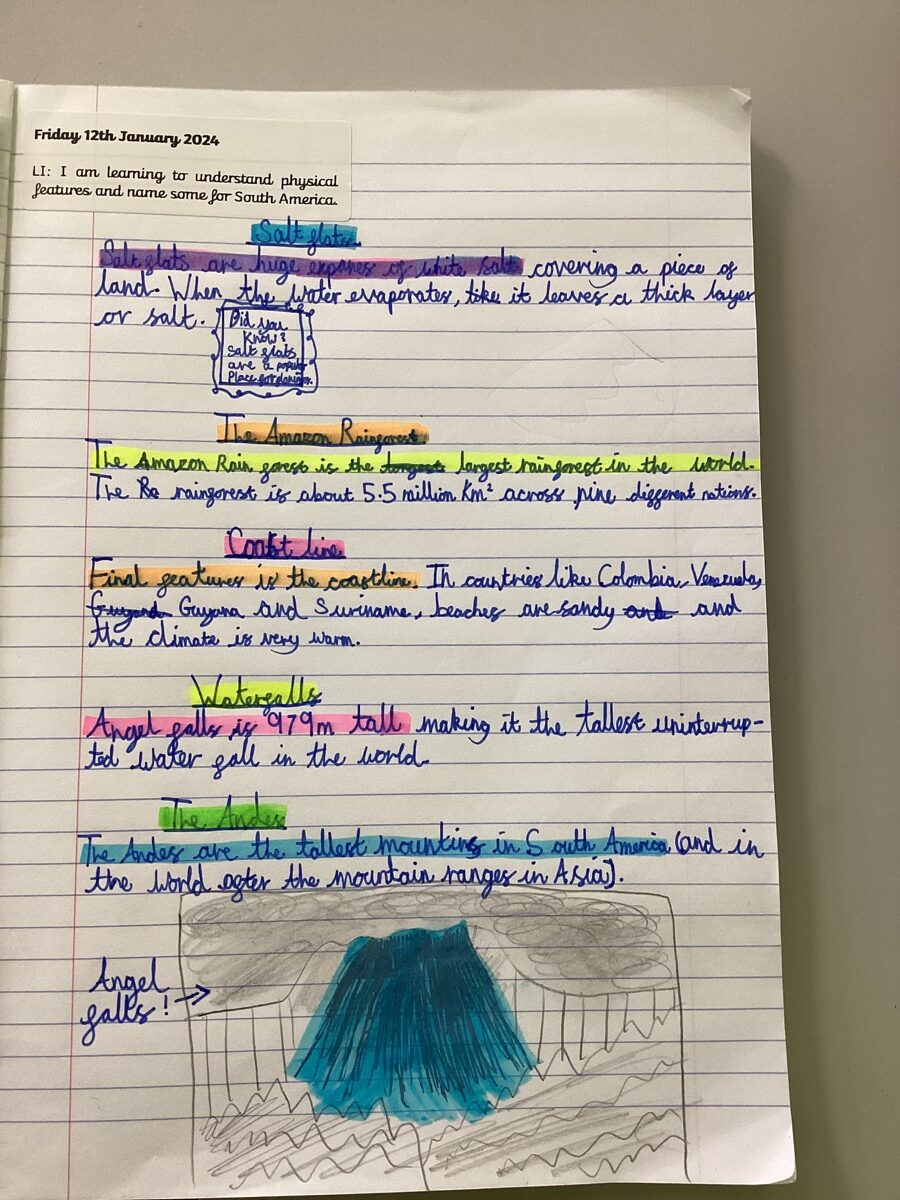 Friday 12th January 2024
LI: I am learning to understand physical
features and name some for South America.
Salt flats
Salt flats are huge expanes of white salt covering a piece of
land. When the water evaporates, like it leaves a thick layer
or salt.
Did you
Know?
Salt flats
are a popular
Place for
The Amazon Rainforest
The Amazon Rain forest is the longest largest rainforest in the world.
The Ra rainforest is about 5.5 million Km² across nine different nations.
Coast line
Final features is the coastline. In countries like Colombia, Venezuela,
Guyand Guyana and Suriname, beaches are sandy and and
the climate is very warm.
Waterfalls
Angel falls is 979m tall making it the tallest uninterrup-
ted water fall in the world.
The Andes
The Andes are the tallest mountins in South America (and in
the world after the mountain ranges in Asia).
Angel
falls!